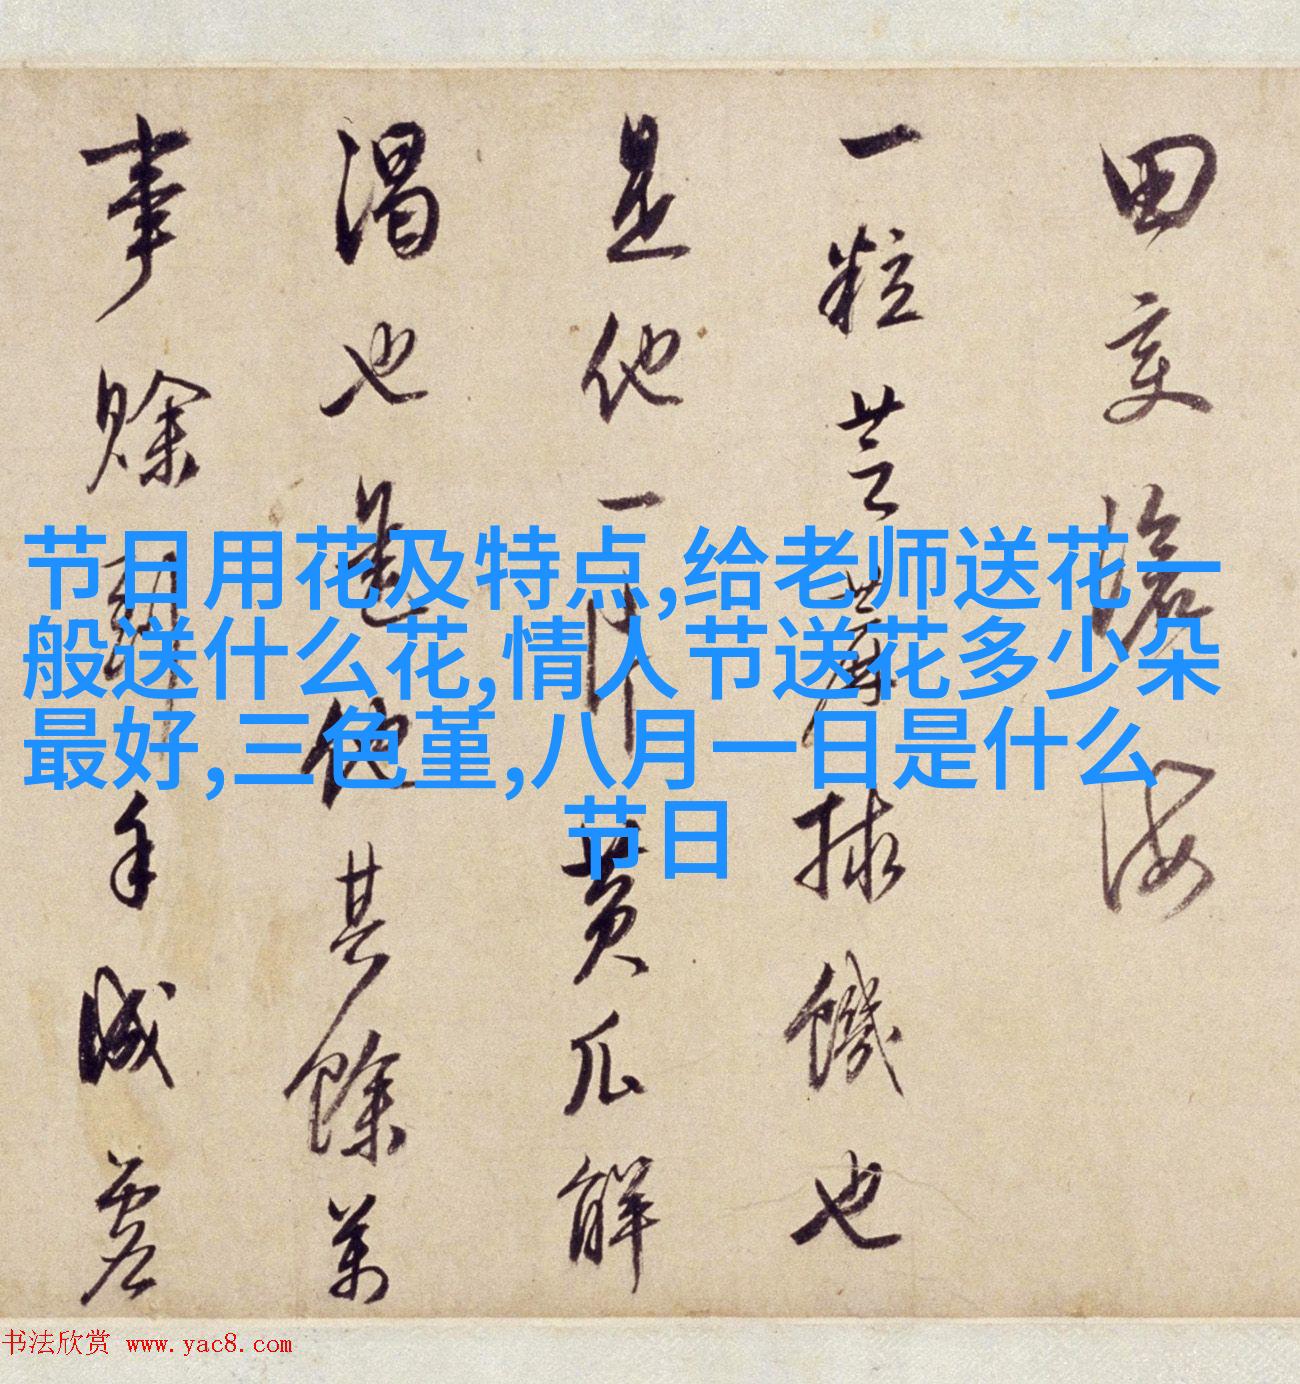 田变滄海
一粒芝蔴捄饑也
是他一片黄瓜解
渴也他其餘萬
事賒手
节日用花及特点,给老师送花一
般送什么花,情人节送花多少朵
最好,三色堇,八月一日是什么
节日
书法欣赏 www.yac8.com